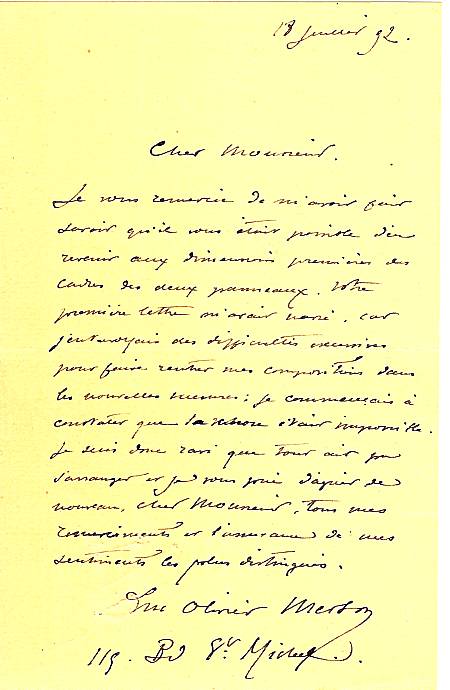 18 Janvier 92.
Cher Monsieur.
Je vous remercie de m'avoir fait
savoir qu'il vous était possible d'en
revenir aux dimensions premières des
cadres des deux panneaux. Votre
première lettre m'avait navré, car
j'entrevoyais des difficultés excessives
pour faire rentrer mes compositions dans
les nouvelles mesures; je commençais à
constater que la chose était impossible.
Je suis donc ravi que tout ait pu
s'arranger et je vous prie d'agréer de
nouveau, cher Monsieur, tous mes
remerciments et l'assurance de mes
sentiments les plus distingués.
Luc Olivier Merson
115. Bd St. Michel.